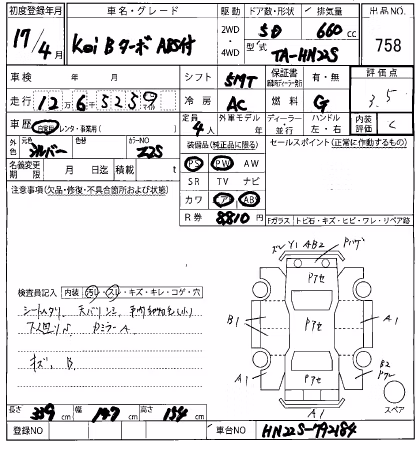 初度登録年月 車名・グレード 駆動 ドア数・形状 排気量 出品NO.
17/4月 Kei Bターボ ABS付 2WD・4WD 5D 660cc 758
型式 TA-HN22S
車検 年 月 シフト 5MT 保証書 有・無 評価点
走行 12万65259 冷房 AC 燃料 G 3.5
車歴 自家用・レンタ・事業用( ) 定員 4人 外車モデル 年 ディーラー・並行 ハンドル 左・右 内装評価 C
外色 元色 シルバー 色替 カラーNO Z2S 装備品(純正品に限る) セールスポイント(正常に作動するもの)
名義変更期限 月 日迄 積載 t PS PW AW
SR TV ナビ
注意事項(欠品・修復・不具合箇所および状態) カワ ア AB
R券 8810円 Fガラス トビ石・キズ・ヒビ・ワレ・リペア跡
ズレ Y1 AB2
Pアセ
検査員記入 内装 汚レ・スレ・キズ・キレ・コゲ・穴
シートスタリ 天バリ
Pミラーム A
キズ、B
Pアセ
B1 Pアセ A1
A1 B2
Pアセ
A1 スペア
長さ 339cm 幅 147cm 高さ 154cm
登録NO 車台NO HN22S-792184